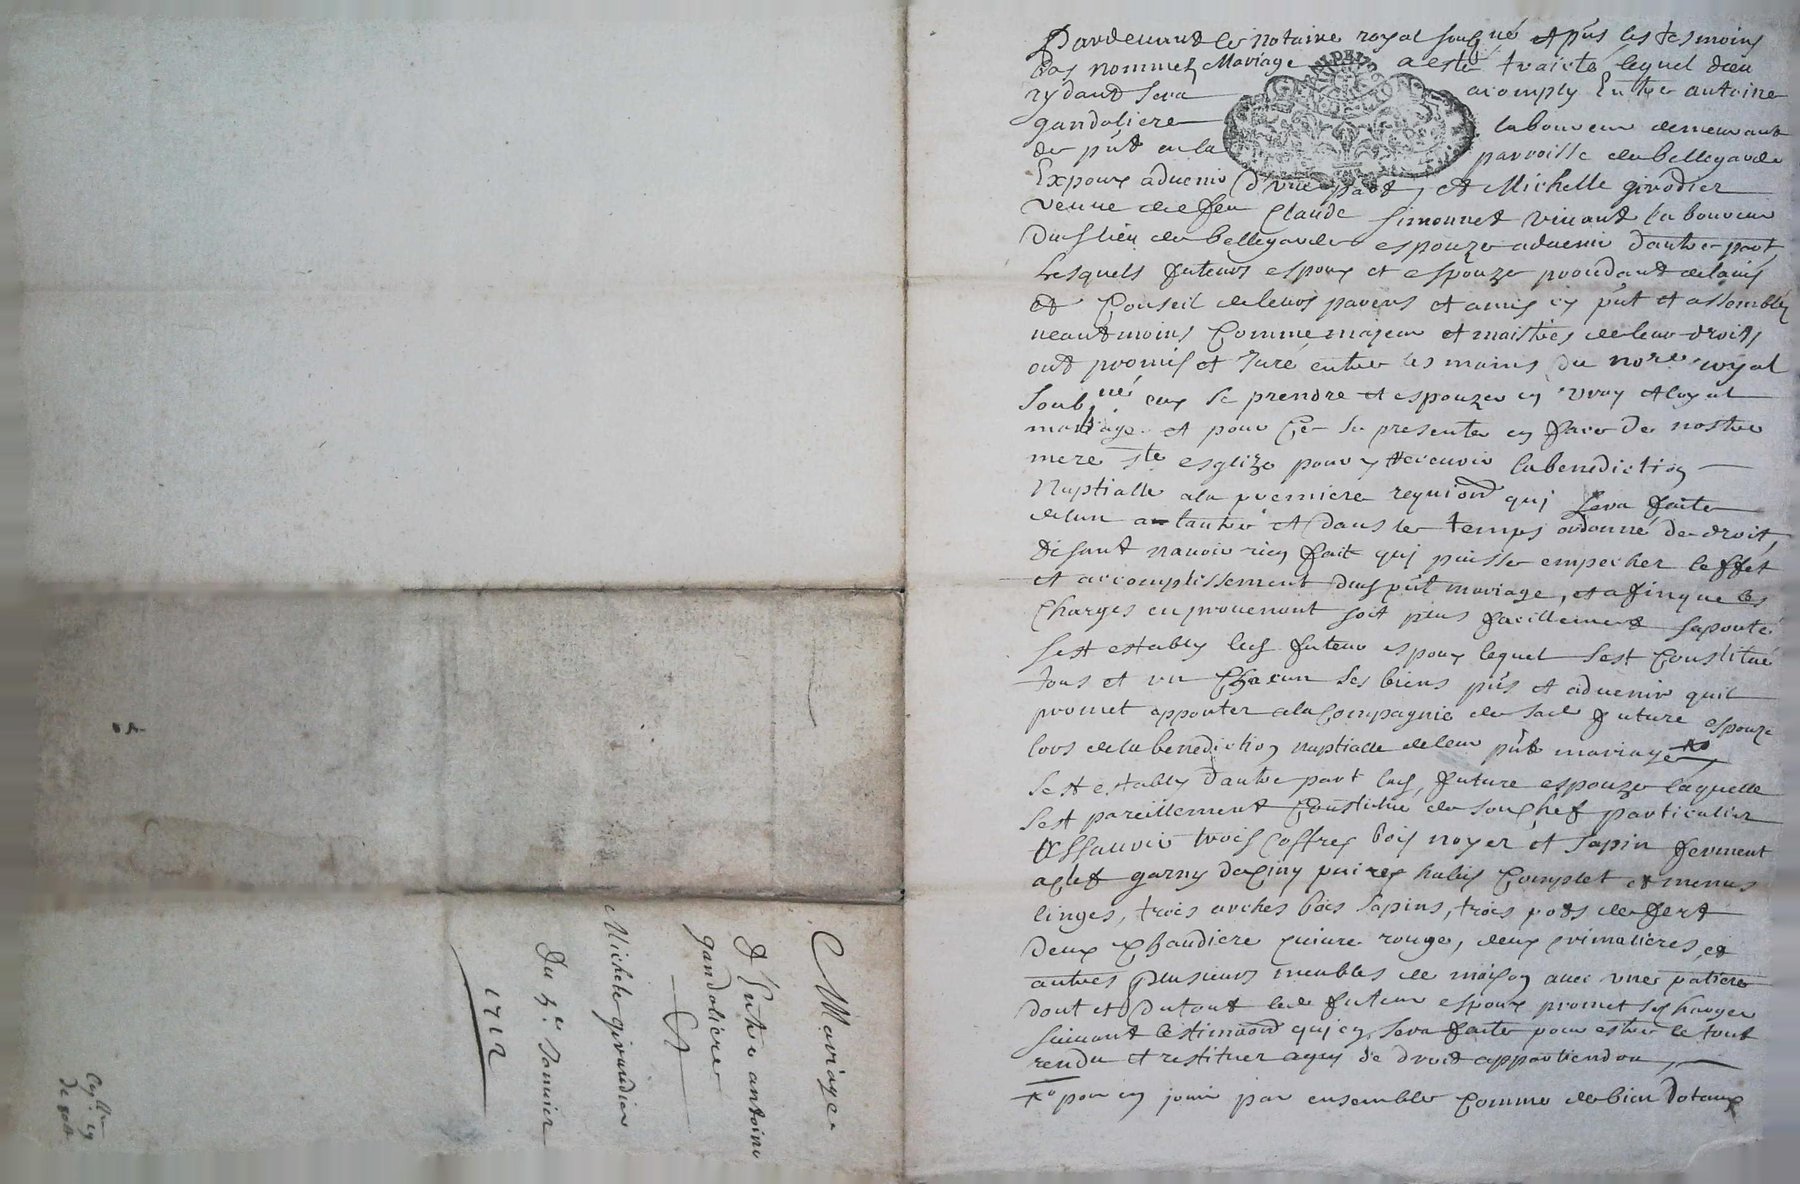 Pardevant le notaire royal soubsigné et pnts les tesmoins
bas nommez Mariage a esté traicté lequel dieu
aydant sera acomply Entre antoine
gandoliere laboureur demeurant
de pnt en la parroisse de bellegarde
Expoux advenir d'vne part, et Michelle girodier
veuue de feu Claude Simonnet viuant laboureur
dud lieu de bellegarde espouze aduenir dautre part
Lesquels futeurs espoux et espouze procedant de lauis
et Conseil de leurs parens et amis icy pnt et assemblés
neantmoins Comme majeur et maistres de leur droits
ont promis et Juré entre les mains du nore royal
soubsigné eux se prendre et espouzer en vray et loyal
mariage et pour Ce se presenter en face de nostre
mere ste esglize pour y recevoir la benediction
Nuptialle a la premiere requiond qui sera faite
de lun a lautre et dans le temps ordonné de droit,
disant nauoir rien fait qui puisse empecher leffet
et accomplissement dud pnt mariage, et afin que les
Charges en prouenant soit plus facillement suporté
sest establis led futeur espoux lequel sest Constitué
tous et vn Chacun ses biens pnts et aduenir quil
promet apporter a la Compagnie de lad future espouze
lors de la benediction nuptialle de leur pnt mariage
sest establis dautre part lad, future espouze laquelle
sest pareillement Constitué de son Chef particulier
assauoir trois Coffres bois noyer et sapin fermant
a clef garny de Cinq paires habis Complet et menus
linges, trois arches bois sapins, trois pots de fert
deux Chaudiere Cuiure rouge, deux Crimalieres, et
autres plusieurs meubles de maison auec vne
dont et du tout led futeur espoux promet sen charger
suiuant lestimaond qui en sera faite pour estre le tout
rendu et restituer a qui de droit appartiendra,
+o pour en jouir par ensemble Comme de bien dotaux
Mariage
d'Entre antoine
gandoliere
Et
Michele giraudier
Du 4e Januier
1712